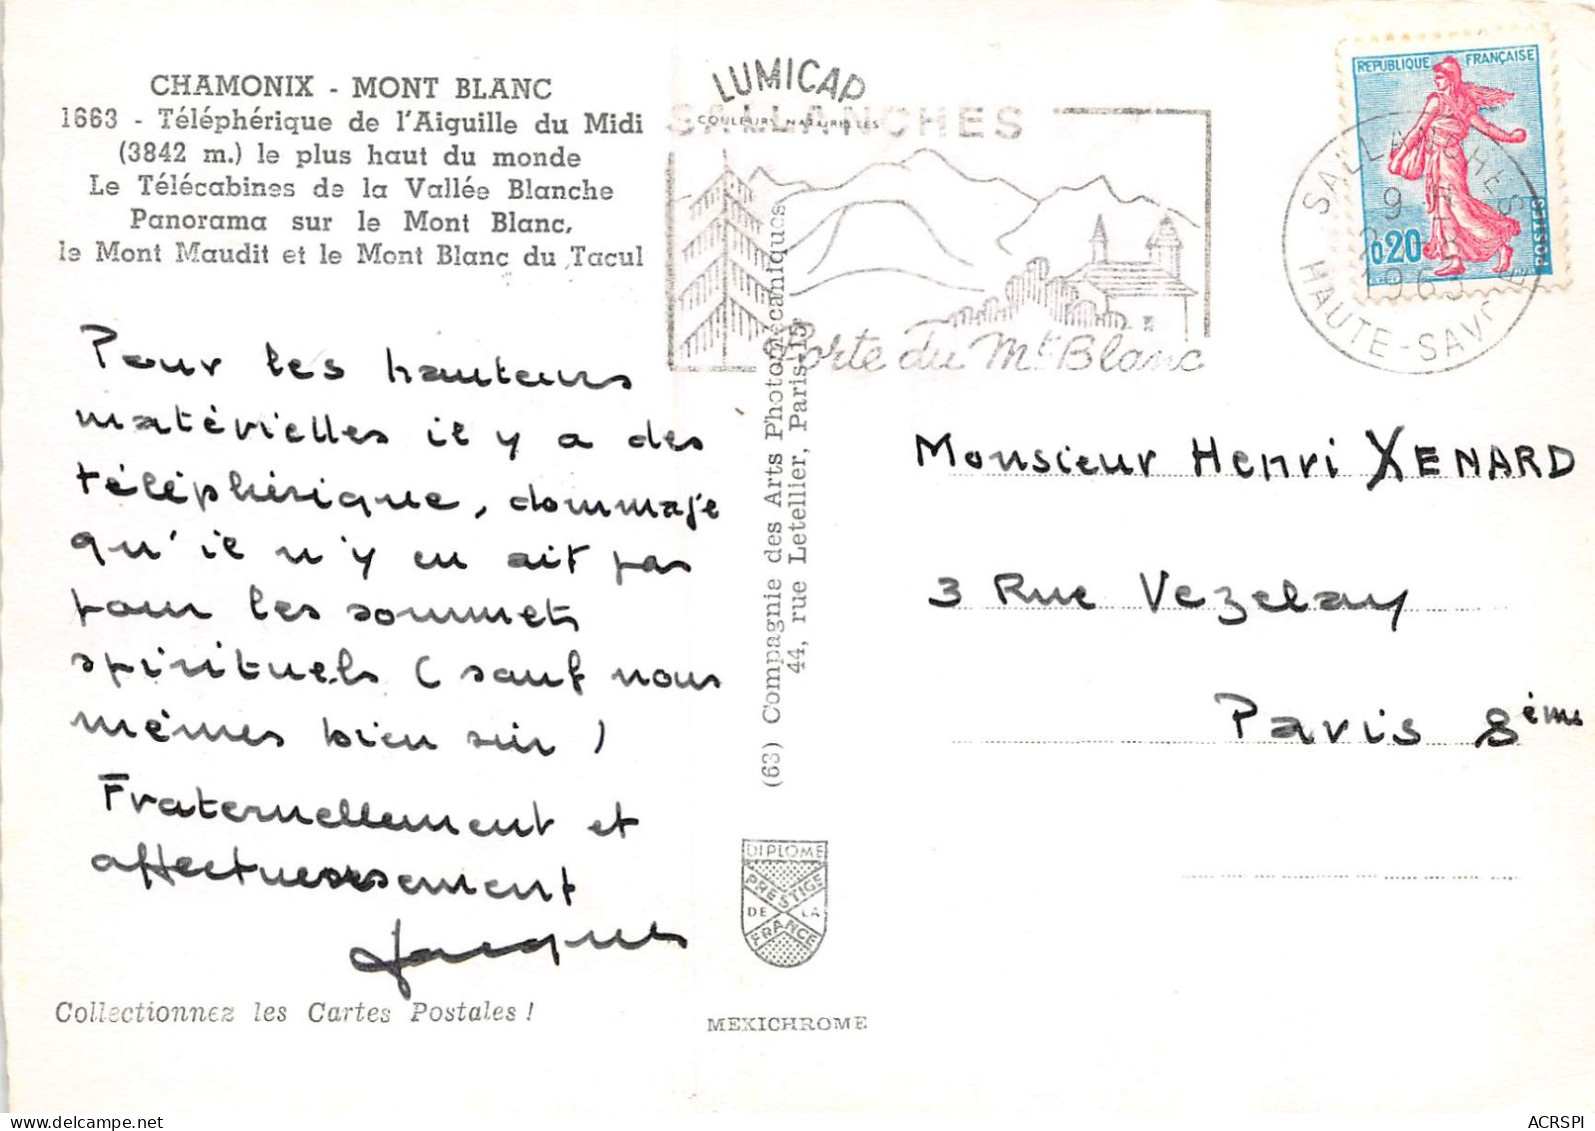 CHAMONIX - MONT BLANC
1663 - Téléphérique de l'Aiguille du Midi
(3842 m.) le plus haut du monde
Le Télécabines de la Vallée Blanche
Panorama sur le Mont Blanc,
le Mont Maudit et le Mont Blanc du Tacul
Pour les hauteurs
matérielles il y a des
téléphérique, dommage
qu'il n'y en ait pas
pour les sommets
spirituels (sauf nous
mêmes bien sûr)
Fraternellement et
affectueusement
Jacques
Collectionnez les Cartes Postales !
LUMICAP
COULEURS NATURELLES
SALLANCHES
Porte du Mt Blanc
(63) Compagnie des Arts Photomécaniques
44, rue Letellier, Paris-15
DIPLOME
PRESTIGE
DE LA
FRANCE
MEXICHROME
REPUBLIQUE FRANÇAISE
0,20
POSTES
SALLANCHES
9 H
1963
HAUTE-SAVOIE
Monsieur Henri XENARD
3 Rue Vezelay
Paris 8ème
ACRSPI